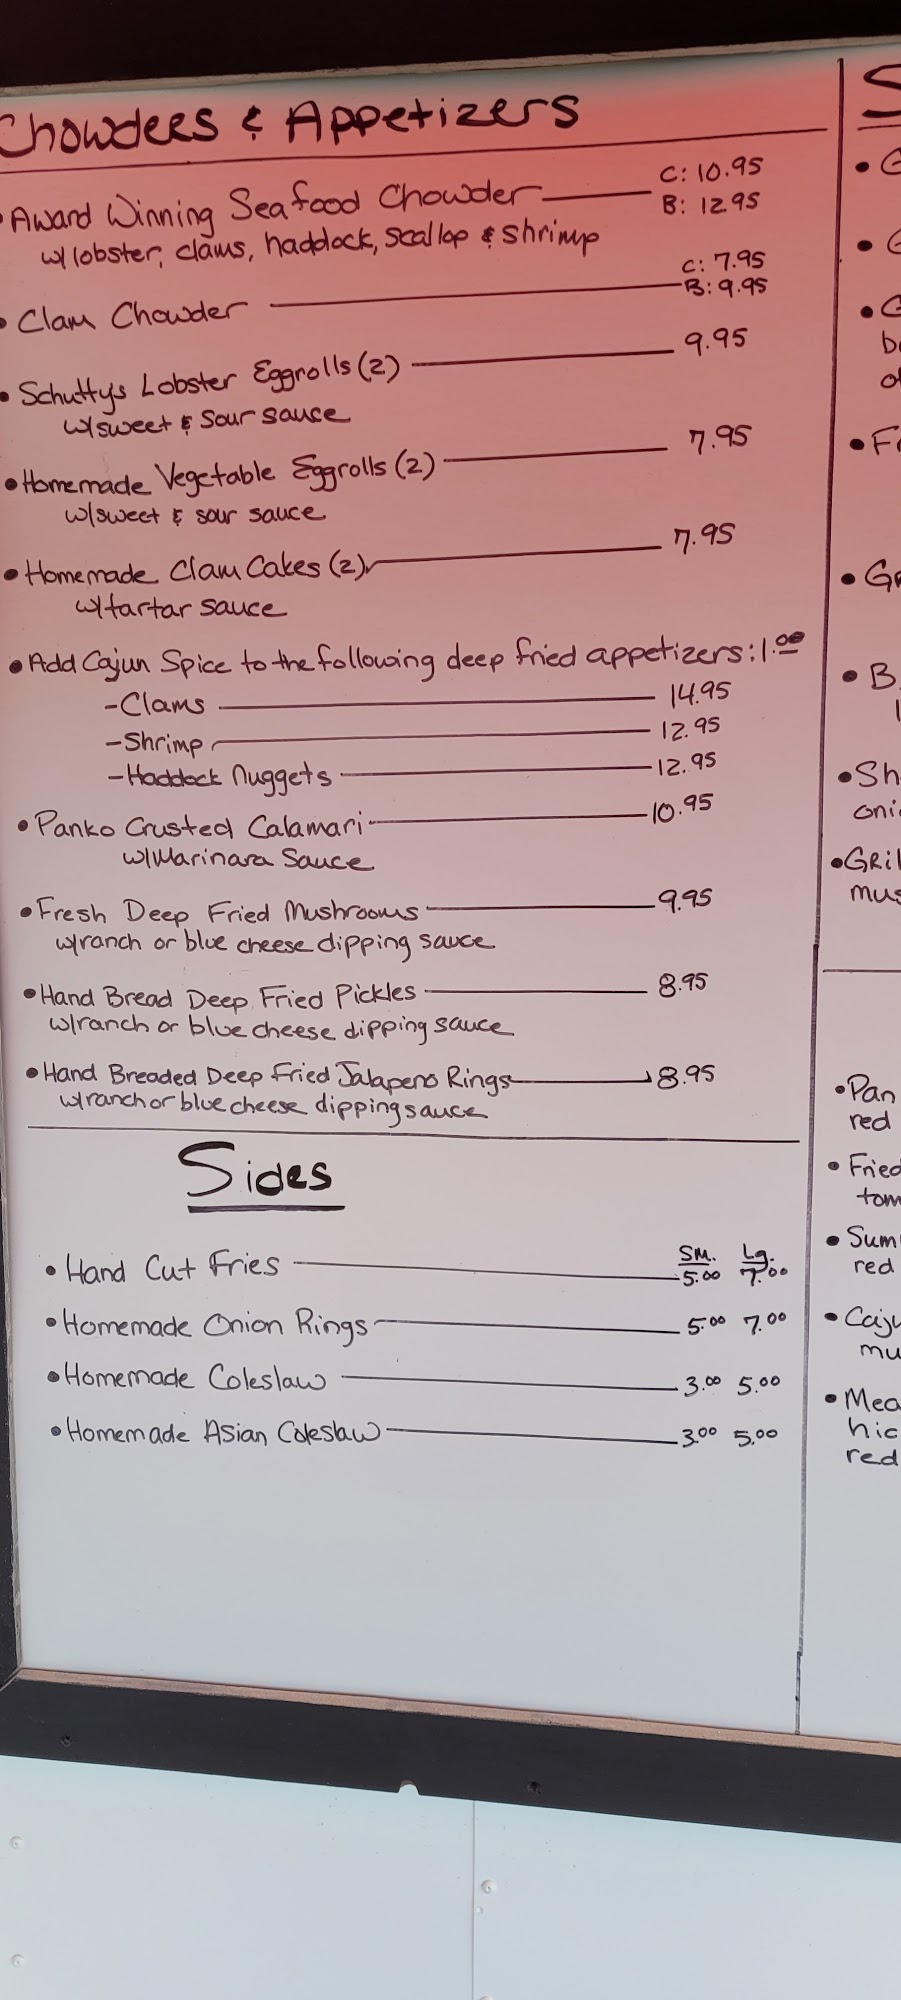 Chowders & Appetizers
• Award Winning Seafood Chowder C: 10.95
B: 12.95
w/lobster, clams, haddock, scallop & shrimp
• Clam Chowder C: 7.95
B: 9.95
• Schuttys Lobster Eggrolls (2) 9.95
w/sweet & sour sauce
• Homemade Vegetable Eggrolls (2) 7.95
w/sweet & sour sauce
• Homemade Clam Cakes (2) 7.95
w/tartar sauce
• Add Cajun Spice to the following deep fried appetizers: 1.00
- Clams 14.95
- Shrimp 12.95
- Haddock Nuggets 12.95
• Panko Crusted Calamari 10.95
w/Marinara Sauce
• Fresh Deep Fried Mushrooms 9.95
w/ranch or blue cheese dipping sauce
• Hand Bread Deep Fried Pickles 8.95
w/ranch or blue cheese dipping sauce
• Hand Breaded Deep Fried Jalapeno Rings 8.95
w/ranch or blue cheese dipping sauce
Sides
Sm. Lg.
• Hand Cut Fries 5.00 7.00
• Homemade Onion Rings 5.00 7.00
• Homemade Coleslaw 3.00 5.00
• Homemade Asian Coleslaw 3.00 5.00
• Pan
red
• Fried
• 
red
mu
red